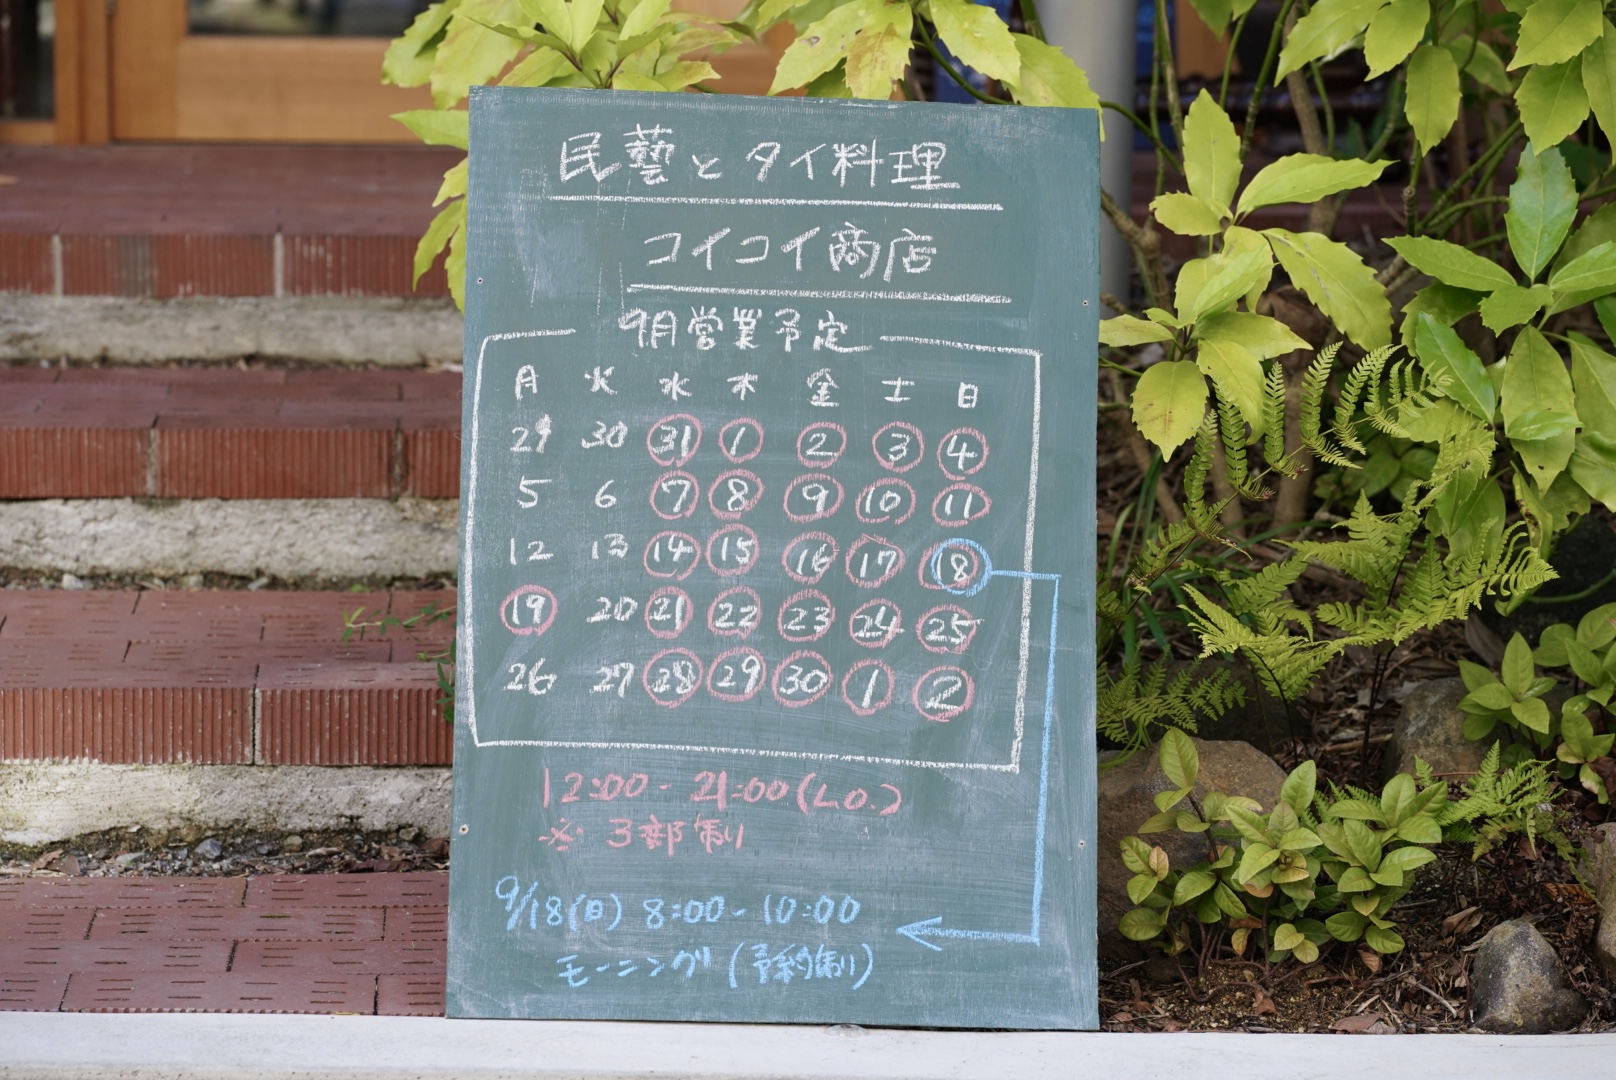 民藝とタイ料理
コイコイ商店
9月営業予定
月 火 水 木 金 土 日
29 30 31 1 2 3 4
5 6 7 8 9 10 11
12 13 14 15 16 17 18
19 20 21 22 23 24 25
26 27 28 29 30 1 2
12:00-21:00(L.O.)
※3部制
9/18(日) 8:00-10:00
モーニング(予約制)